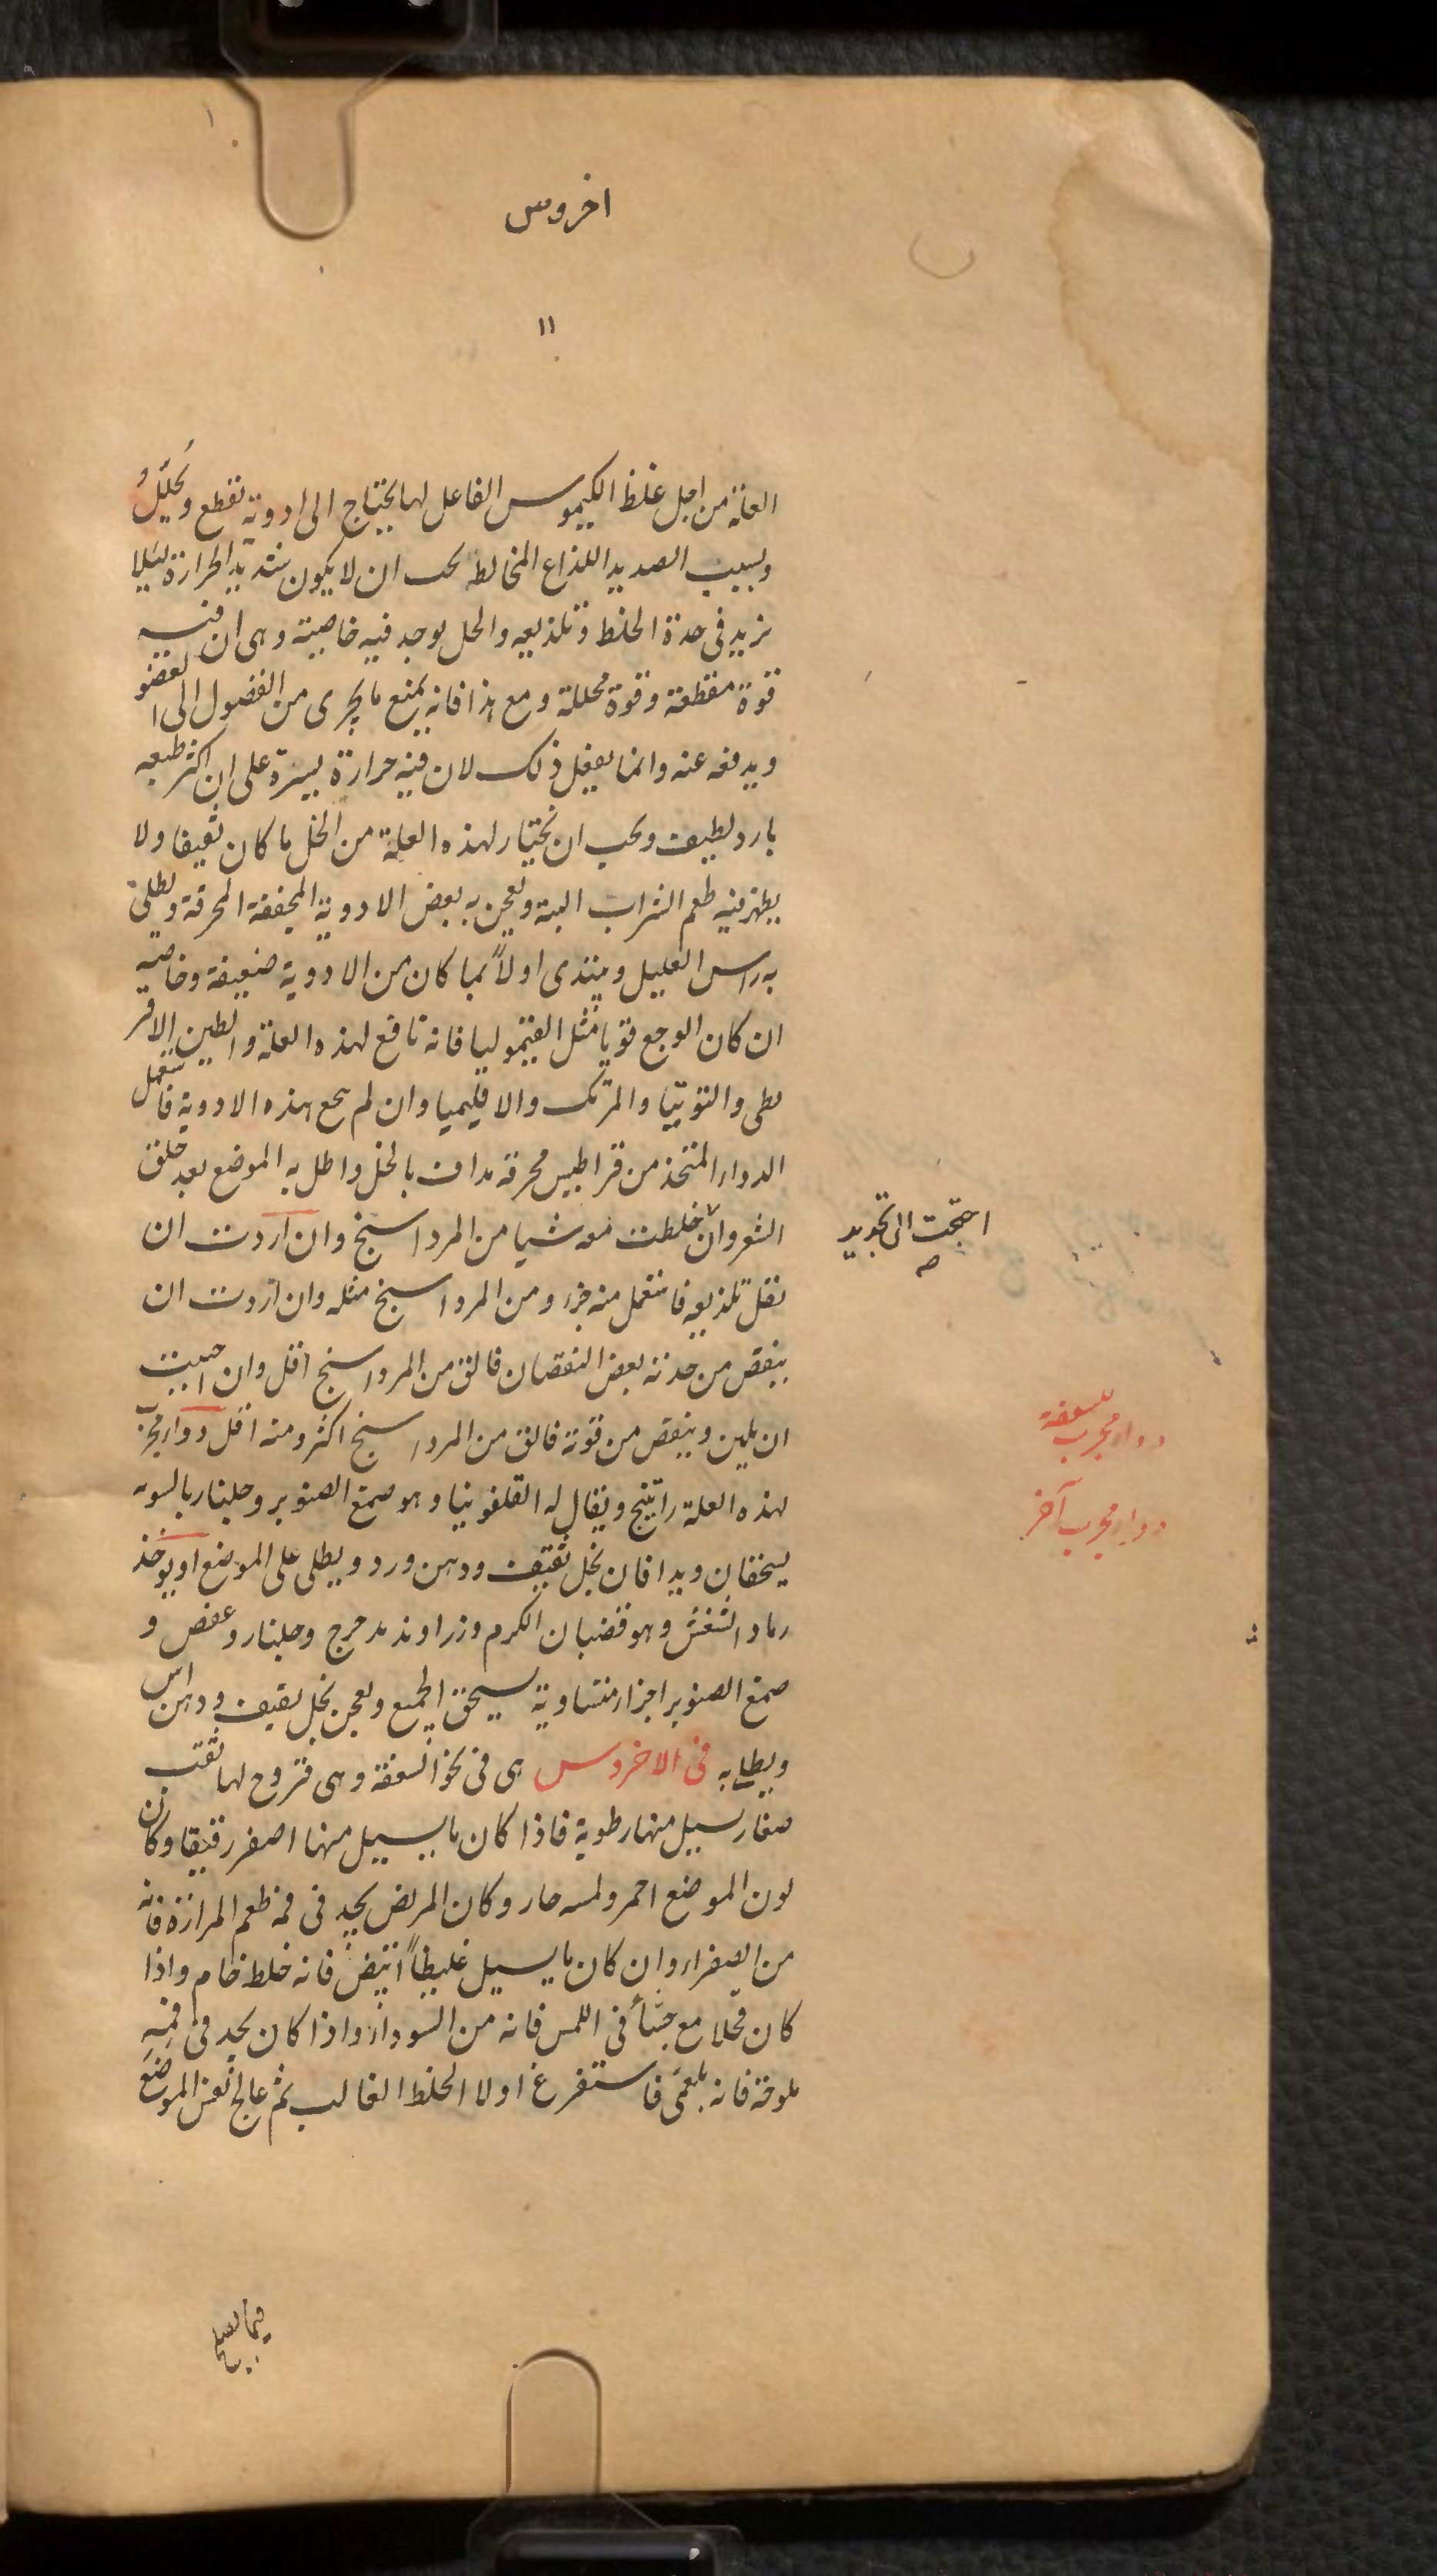 اخروس
١١
العلة من اجل غلظ الكيموس الفاعل لها يحتاج الى ادوية تقطع وتُحلّلُ
وبسبب الصديد اللذاع المخالط يجب ان لا يكون شديد الحرارة ليلا
يزيد فى حدة الخلط وتلذيعه والخل يوجد فيه خاصية وهى ان فيه
قوة مقطعة وقوة محللة ومع هذا فانه يمنع ما يجرى من الفضول الى العضو
ويدفعه عنه وانما يفعل ذلك لان فيه حرارة يسيرة على ان اكثر طبعه
بارد لطيف ويجب ان تختار لهذه العلة من الخل ما كان ثقيفا ولا
يظهر فيه طعم الشراب البتة ويعجن به بعض الادوية المجففة المحرقة ويطلى
به راس العليل ويبتدى اولاً بما كان من الادوية ضعيفة وخاصة
ان كان الوجع قويا مثل القيموليا فانه نافع لهذه العلة والطين الاقر
يطى والتوتيا والمرتك والاقليميا وان لم ينجع هذه الادوية فاستعمل
الدواء المتخذ من قراطيس محرقة مداف بالخل واطل به الموضع بعد حلق
الشعر وان خلطت معه شيا من المرداسنج وان اردت ان
احتجت الى تجديد
صح
تقل تلذيعه فاستعمل منه جزء ومن المرداسنج مثله وان اردت ان
ينقص من حدته بعض النقصان فالق من المرداسنج اقل وان احببت
ان يلين وينقص من قوته فالق من المرداسنج اكثر ومنه اقل دواء مجرب
دواء مجرب للسعفة
لهذه العلة راتينج ويقال له القلفونيا وهو صمغ الصنوبر وجلنار بالسوية
دواء مجرب آخر
يسحقان ويدافان بخل ثقيف ودهن ورد ويطلى على الموضع او يوخذ
رماد الشغش وهو قضبان الكرم وزراوند مدحرج وجلنار وعفص و
صمغ الصنوبر اجزاء متساوية يسحق الجميع ويعجن بخل ثقيف ودهن اس
ويطلى به فى الاخروس هى فى نحو السعفة وهى قروح لها ثقب
صغار يسيل منها رطوبة فاذا كان ما يسيل منها اصفر رقيقا وكان
لون الموضع احمر ولمسه حار وكان المريض يجد فى فمه طعم المرارة فانه
من الصفراء وان كان ما يسيل غليظاً ابيض فانه خلط خام واذا
كان قحلا مع جشأ فى اللمس فانه من السوداء واذا كان يجد فى فمِهِ
ملوحة فانه بلغمى فاستفرغ اولا الخلط الغالب ثم عالج نفس الموضع